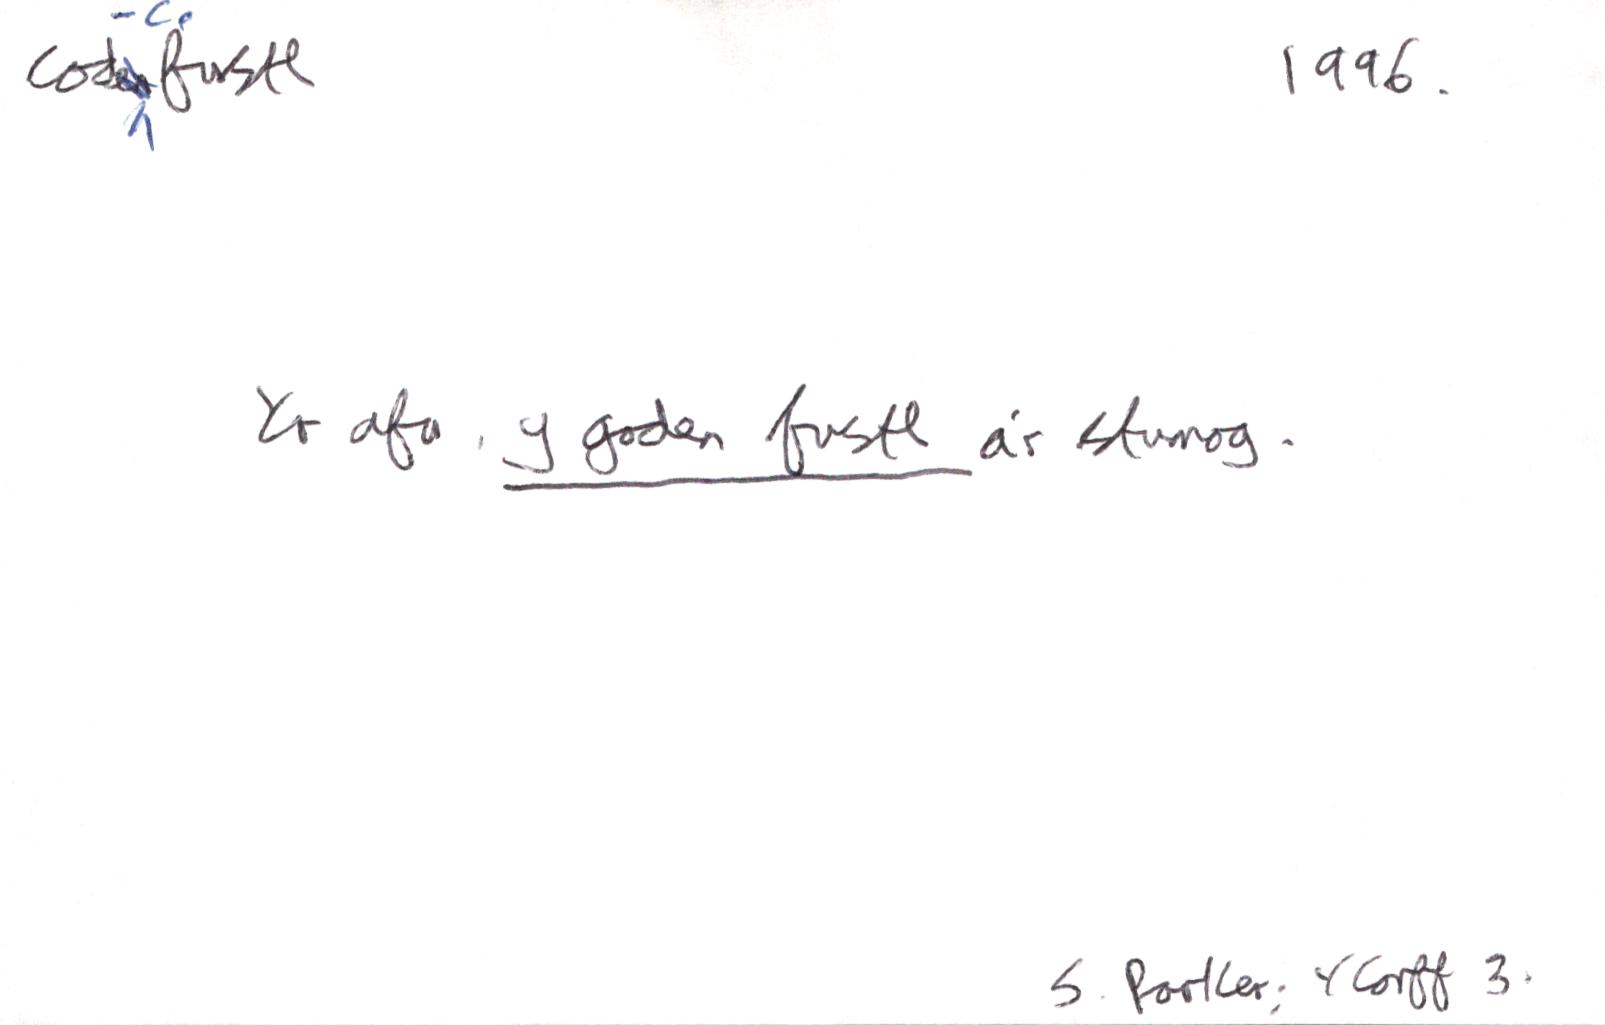 -c.
coden fustl 1996.
Yr afu, y goden fustl a'r stumog.
S. Parker; Y Corff 3.